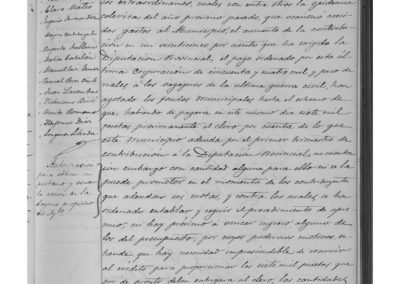 Alvaro Mateo
Eugenio Fernandez
Mariano
Ruperto
Matias Catalán
Maximiliano Gomez
Pascual
Juan
Victoriano
Benito Romano
Ildefonso Diaz
Autorizacion
para obtener un
préstamo y vender
la
dehesa propiedad
del Siglo
extraordinarios, cuales son entre otros la epidemia
colérica del año próximo pasado, que ocasionó creci
dos gastos al Municipio, el aumento de la contribu
cion en un veinticinco por ciento que ha exigido la
Diputacion Provincial, el pago ordenado por esta úl
tima Corporacion de cincuenta y cuatro mil y pico de
reales á los bagageros de la última guerra civil, han
agotado los fondos Municipales hasta el extremo de
que, habiendo de pagarse en este mismo dia siete mil
pesetas proximamente al clero por cuenta de lo que
este Municipio adeuda por el primer trimestre de
contribucion á la Diputacion Provincial, no cuenta
sin embargo con cantidad alguna para ello ni se la
puede prometer en el momento de los contribuyentes
que adeudan sus cuotas, y contra los cuales se ha
ordenado entablar y seguir el procedimiento de apre
mio, ni hay próximo á vencer ingreso alguno de
los del presupuesto, por cuyos poderosos motivos, en
tiende que hay necesidad imprescindible de recurrir
al crédito para proporcionar las siete mil pesetas que
por de pronto deben entregarse al clero, las cantidades